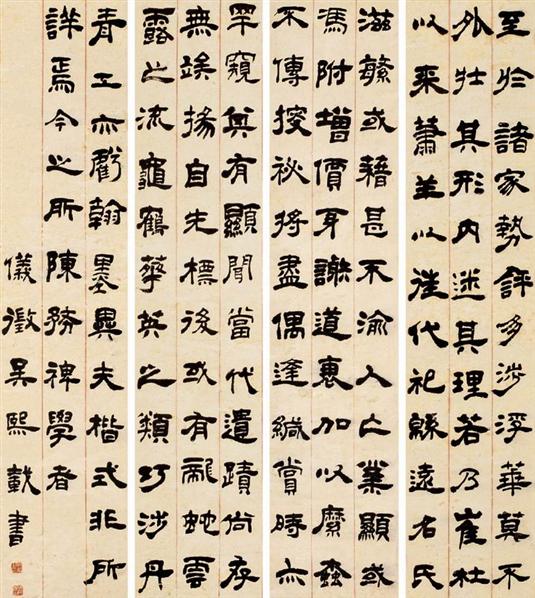 至於諸家勢評多涉浮華莫不
外壯其形內迷其理若乃崔杜
以來蕭羊以往代祀緜遠名氏
滋繁或藉甚不渝人亡業顯或
馮附增價身謝道衰加以糜蠹
不傳搜祕將盡偶逢緘賞時亦
罕窺其有顯聞當代遺蹟尚存
無俟揚自先標後或有龍蛇雲
露之流龜鶴華英之類巧涉丹
青工亦虧翰墨異夫楷式非所
詳焉今之所陳務裨學者
儀徵吳熙載書